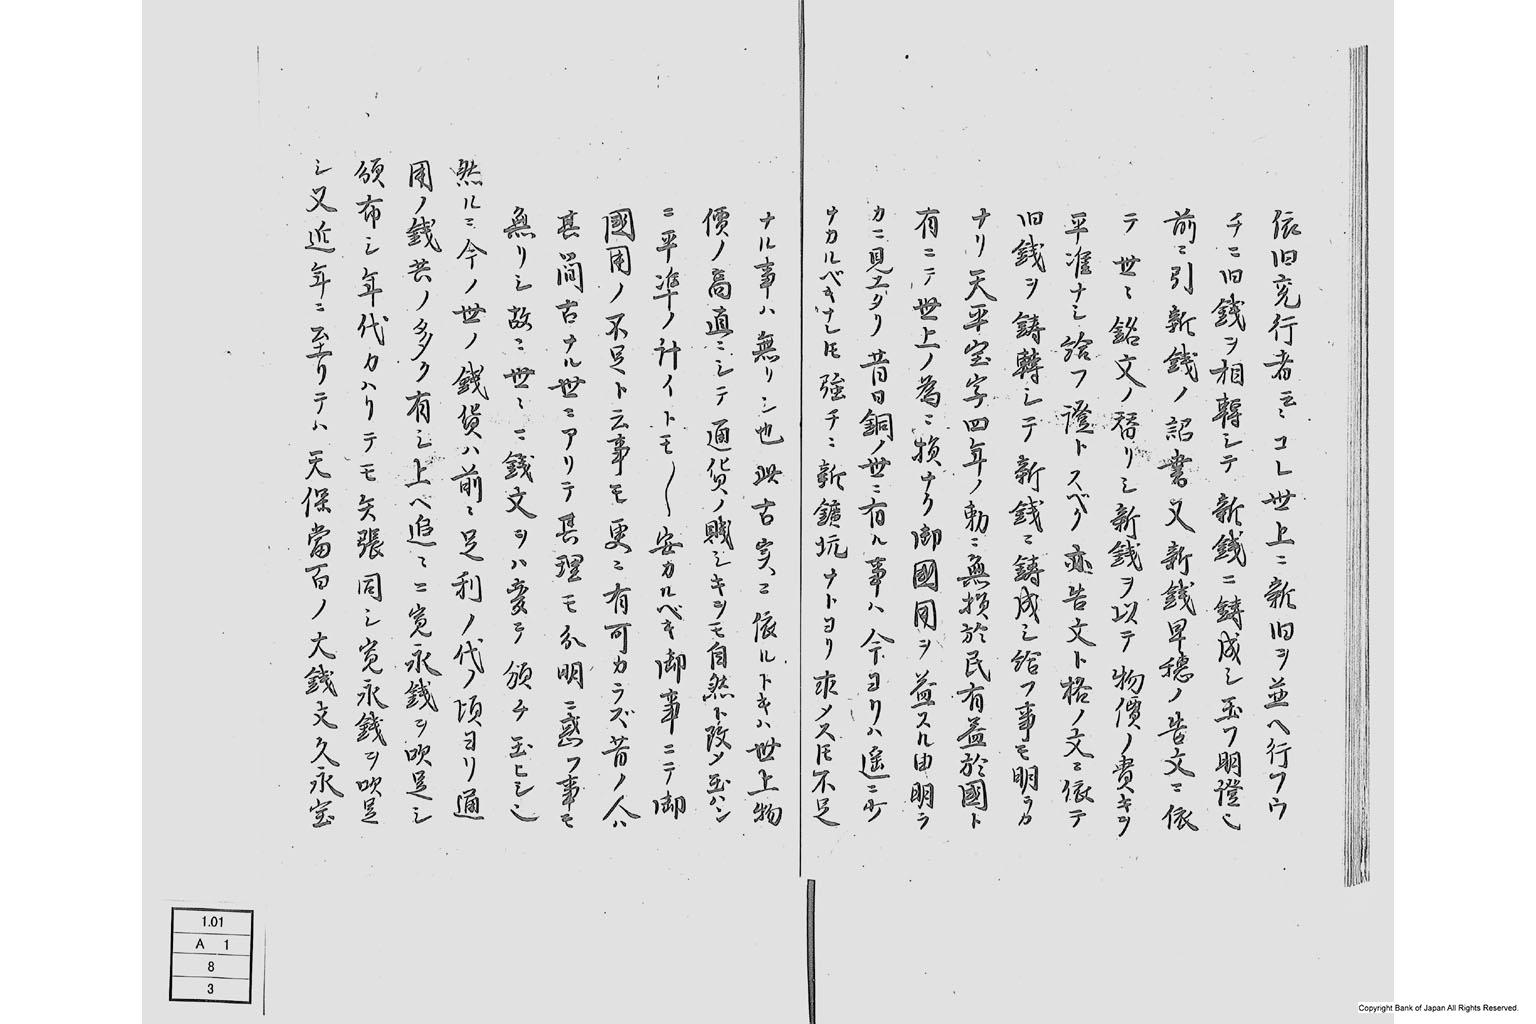 依旧充行者云〻コレ世上ニ新旧ヲ並ヘ行フウ
チニ旧銭ヲ相轉シテ新銭ニ鋳成シ玉フ明證也
前ニ引新銭ノ詔書又新銭早穂ノ告文ニ依
テ世〻銘文ノ替リシ新銭ヲ以テ物價ノ貴キヲ
平準ナシ給フ證トスベク亦告文ト格ノ文ニ依テ
旧銭ヲ鋳轉シテ新銭ニ鋳成シ給フ事モ明ラカ
ナリ天平宝字四年ノ勅ニ無損於民有益於國ト
有ニテ世上ノ為ニ損ナク御國用ヲ益スル由明ラ
カニ見エタリ昔日銅ノ世ニ有ル事ハ今ヨリハ遥ニ少
ナカルベキナレ𪜈強チニ新鑛坑ナトヨリ求メス𪜈不足
ナル事ハ無リシ也此古実ニ依ルトキハ世上物
價ノ高直ニシテ通貨ノ賤シキヲモ自然ト改メ玉ハン
ニ平準ノ計イトモ〳〵安カルベキ御事ニテ御
國用ノ不足ト云事モ更ニ有可カラズ昔ノ人ハ
甚簡古ナル世ニアリテ其理モ分明ニ惑フ事モ
無リシ故ニ世〻ニ銭文ヲハ変テ頒チ玉ヒシ也
然ルニ今ノ世ノ銭貨ハ前ニ足利ノ代ノ頃ヨリ通
用ノ銭共ノ多ク有シ上ヘ追〻ニ寛永銭ヲ吹足シ
頒布シ年代カハリテモ矢張同シ寛永銭ヲ吹足
シ又近年ニ至リテハ天保當百ノ大銭文久永宝
1.01
A 1
8
3
Copyright Bank of Japan All Rights Reserved.